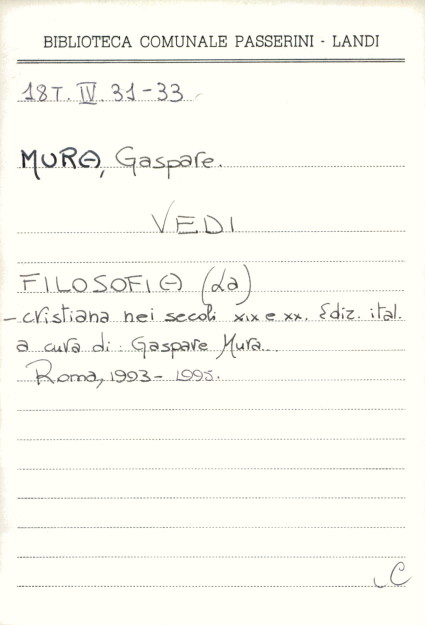 BIBLIOTECA COMUNALE PASSERINI - LANDI
18T. IV. 31-33
MURA, Gaspare.
VEDI
FILOSOFIA (La)
- cristiana nei secoli XIX e XX. Ediz. ital.
a cura di: Gaspare Mura.
Roma, 1993 - 1995.
C